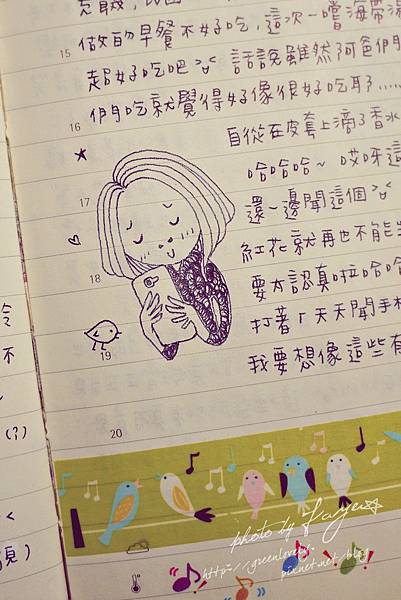 做的早餐不好吃，這次一嚐海帶湯
15
超好吃吧 話說雖然阿爸們
16
們吃就覺得好像很好吃耶……
自從在皮套上滴了香水
哈哈哈~ 哎呀這
17
還一邊聞這個
紅花就再也不能
18
要太認真啦哈哈
打著「天天聞手機
19
我要想像這些有
20
不
(?)
photo by Faye
http://greenlove
pixnet.net/blog